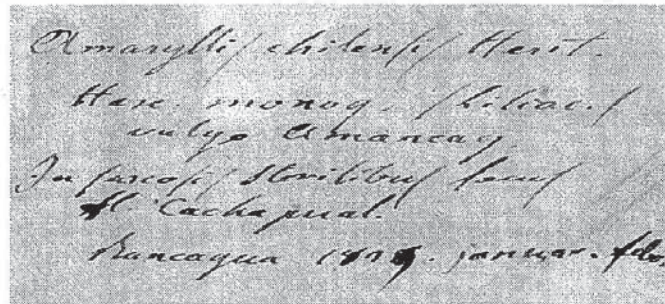 Amaryllis chilensis Herit.
Hexe. monog. (Liliac.)
vulgo Amancay
In siccosis sterilibus locis
fl. Cachapual.
Rancagua 18 januar. febr